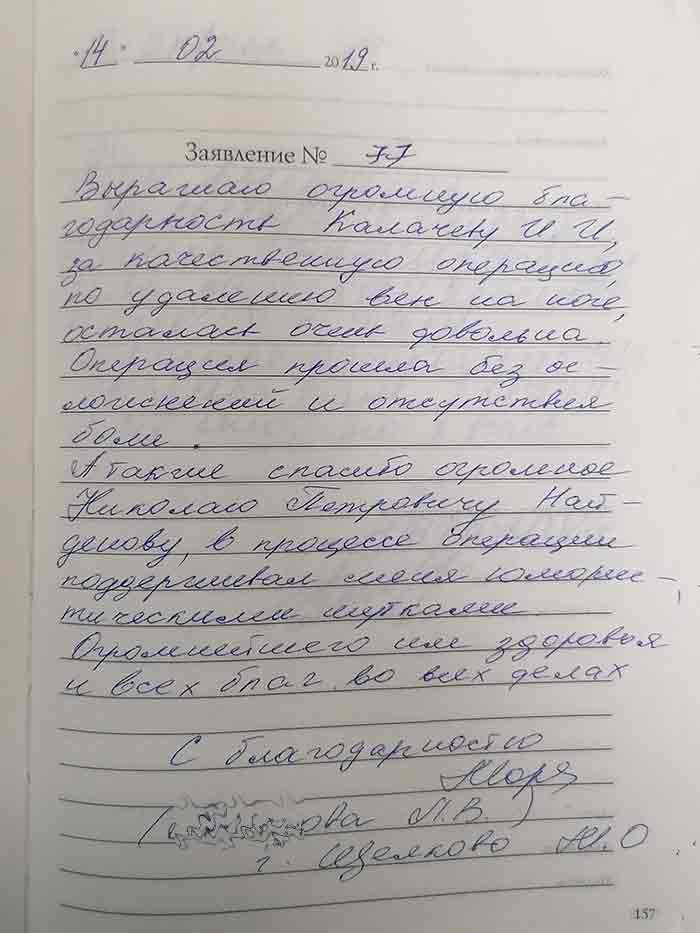 "14" 02 2019 г.
Заявление № 77
Выражаю огромную бла-
годарность Калачеву И.И,
за качественную операцию,
по удалению вен на ноге,
осталась очень довольна.
Операция прошла без ос-
ложнений и отсутствия
боли.
А также спасибо огромное
Николаю Петровичу Най-
денову, в процессе операции
поддерживал меня юморис-
тическими шутками
Огромнейшего им здоровья
и всех благ во всех делах
С благодарностью
ова Л.В.)
г. Щелково М.О
157